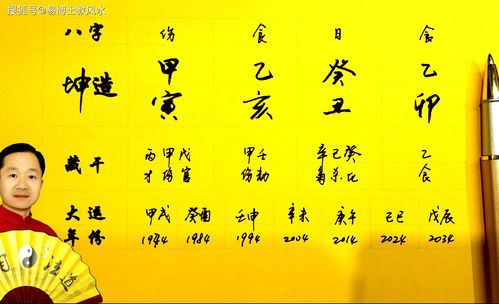 搜狐号@易博士救风水
八字 伤 食 日 食
坤造 甲寅 乙亥 癸丑 乙卯
藏干 丙甲戊 甲壬 辛己癸 乙
才伤官 伤劫 枭杀比 食
大运 甲戌 癸酉 壬申 辛未 庚午 己巳 戊辰
年份 1974 1984 1994 2004 2014 2024 2034
道